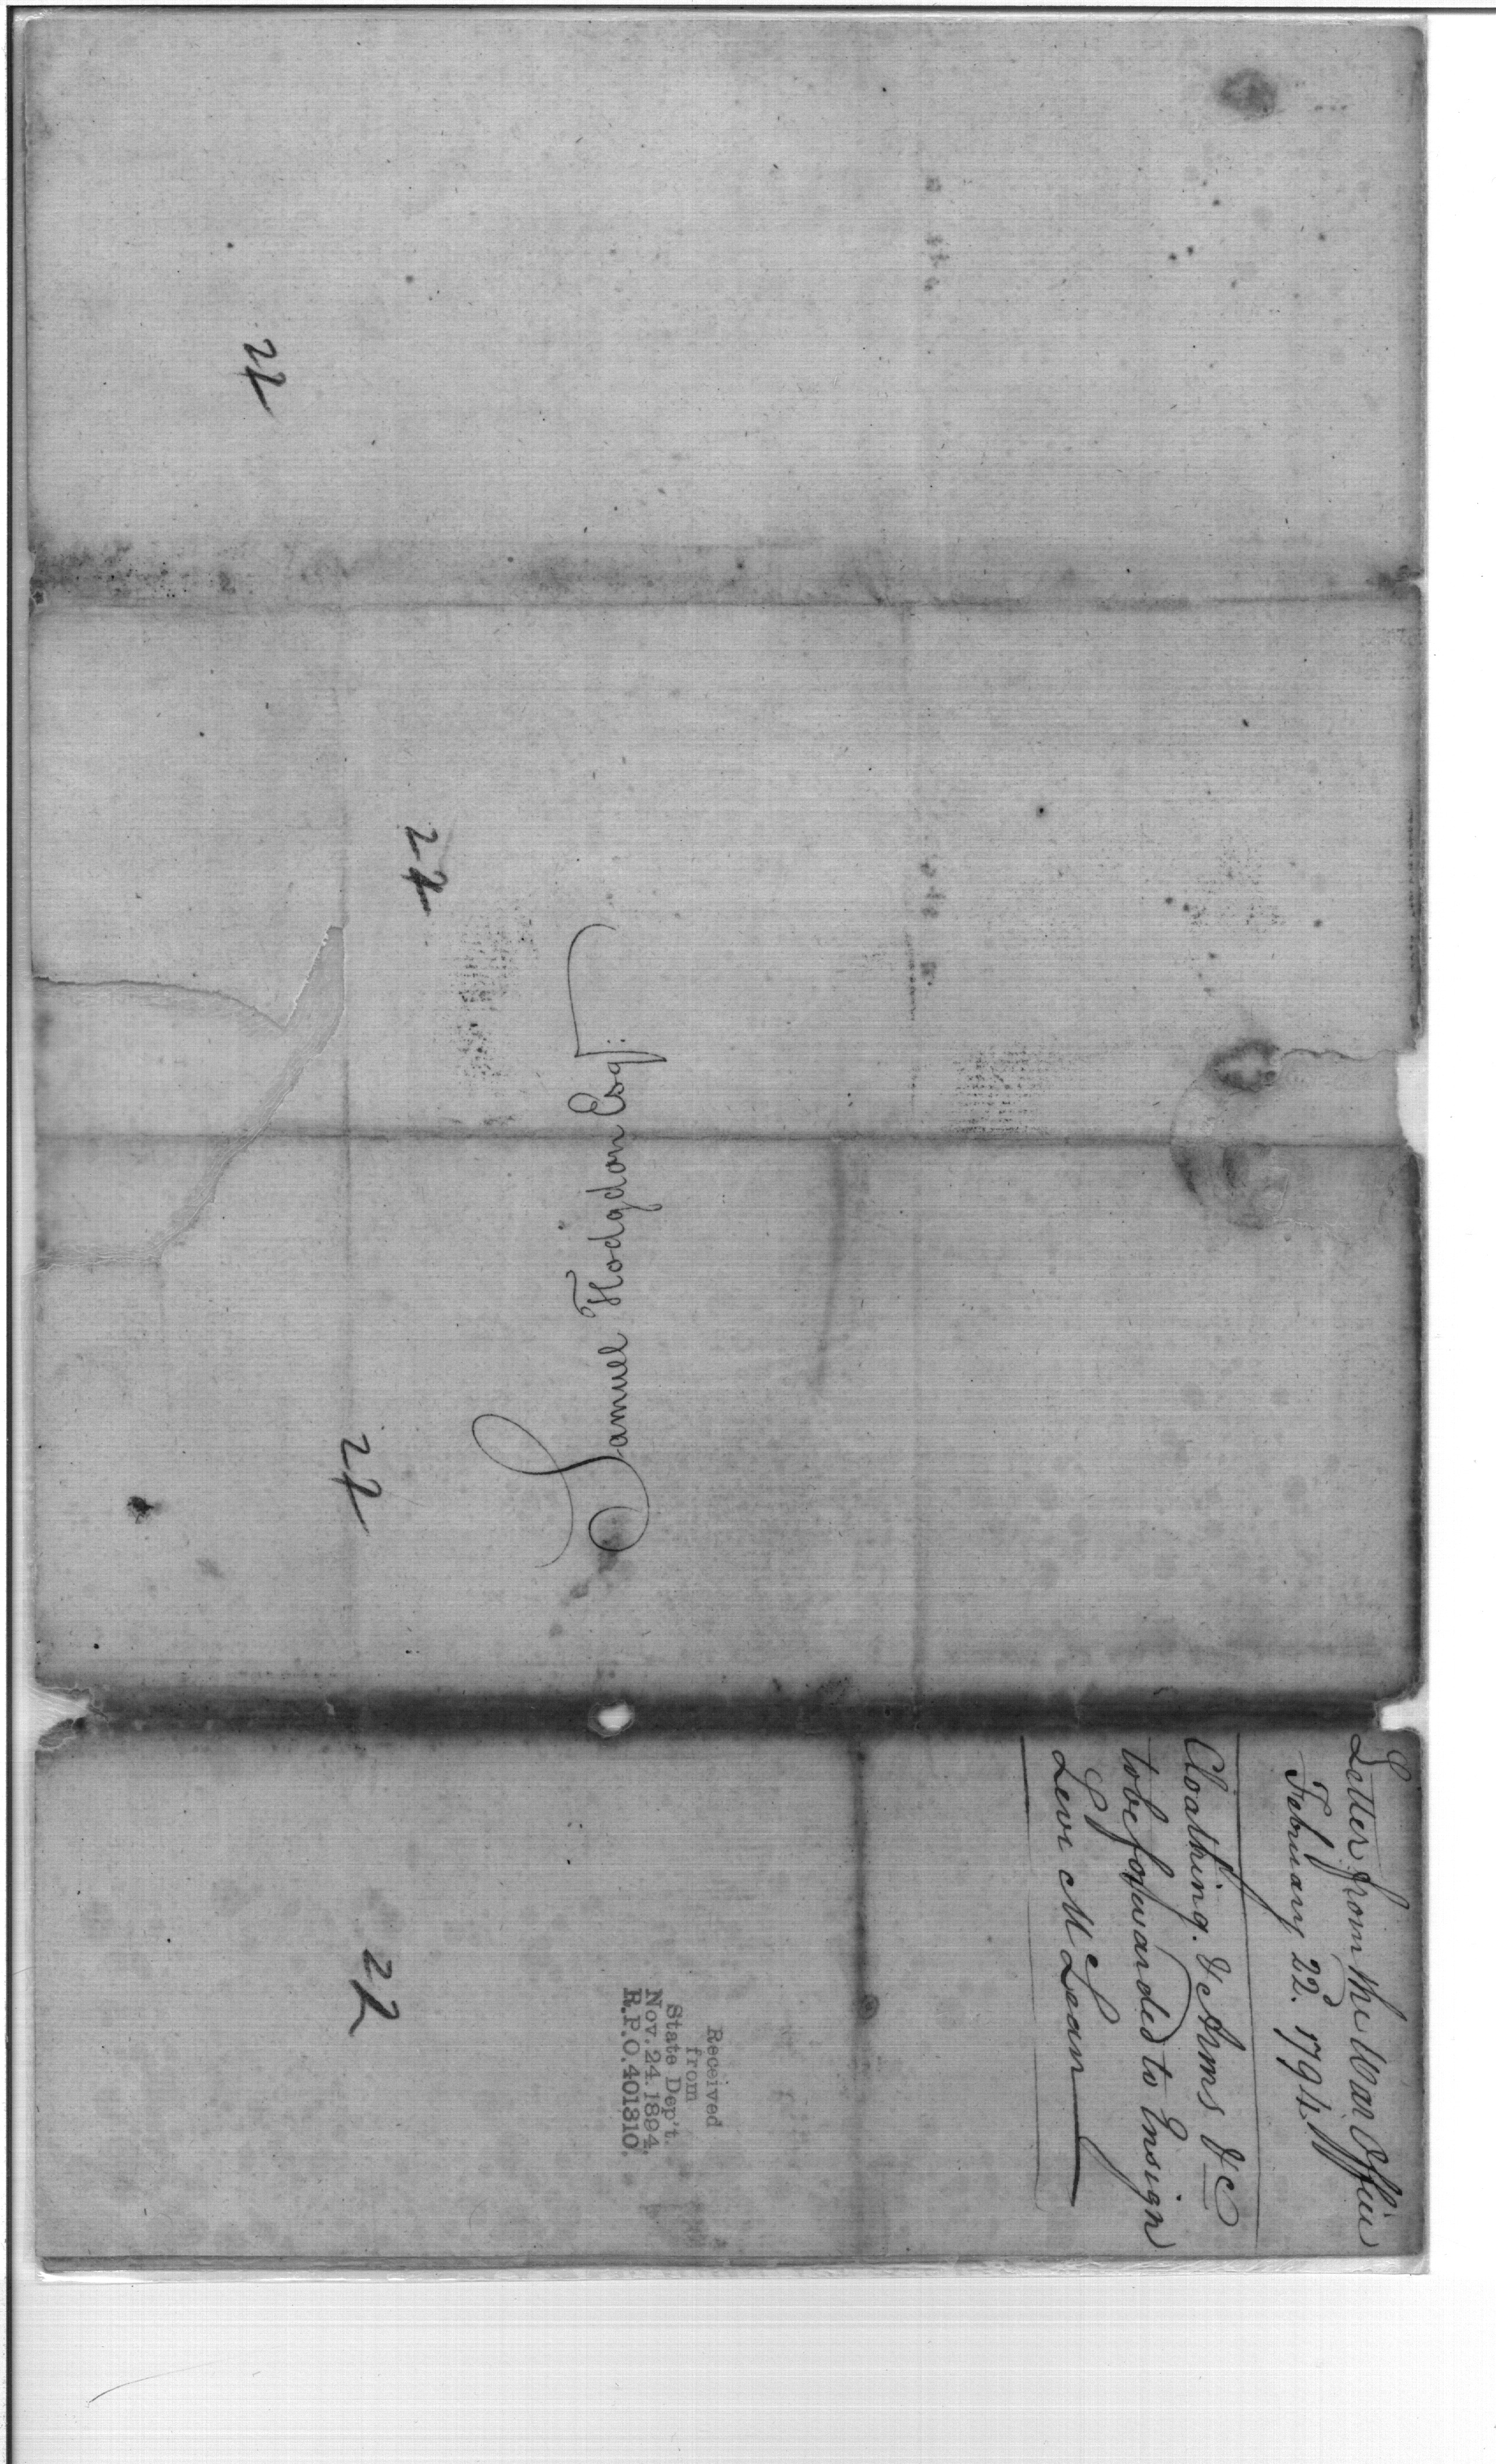 Samuel Hodgdon Esqr:
Letter from the War Office
February 22d. 1794
Cloathing. & Arms &c
to be forwarded to Ensign
Levi McLean
Received
from
State Dep't.
Nov. 24. 1894.
R.P.O. 401310.
22
22
22
22